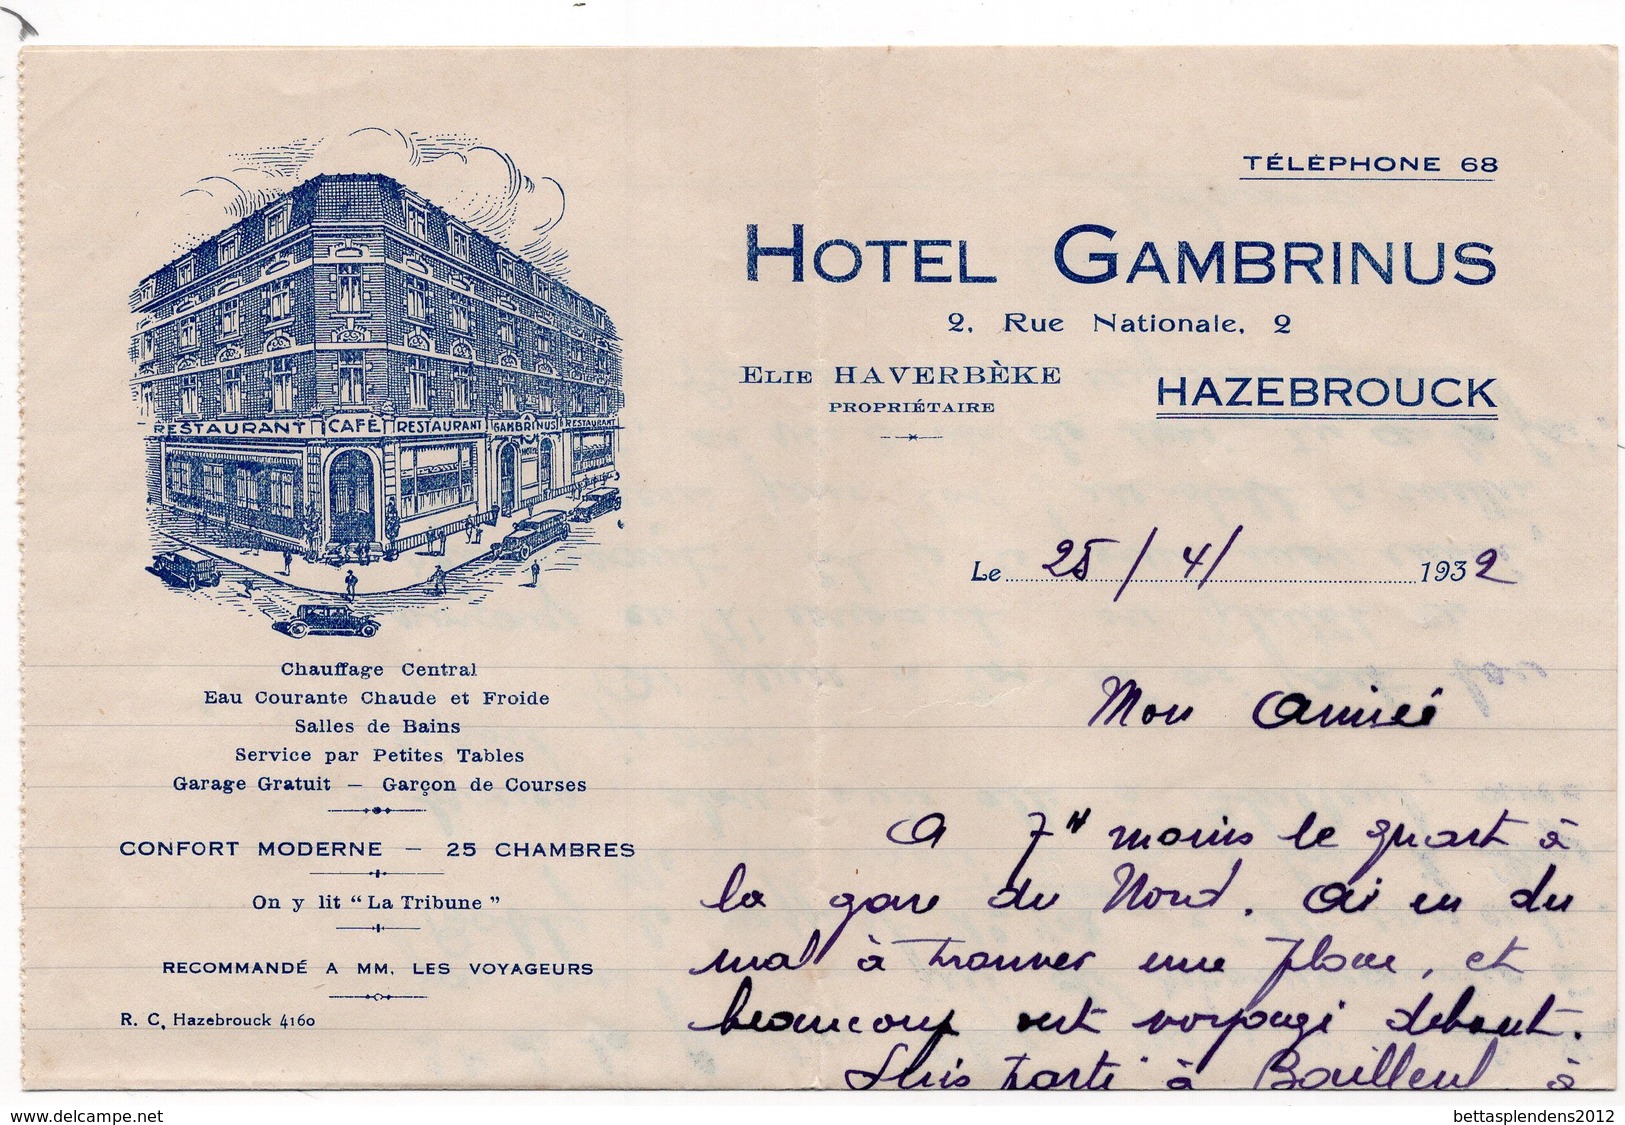 TÉLÉPHONE 68
HOTEL GAMBRINUS
2, Rue Nationale, 2
ELIE HAVERBÈKE
PROPRIÉTAIRE
HAZEBROUCK
RESTAURANT CAFÉ RESTAURANT GAMBRINUS RESTAURANT
HOTEL
Le 25/4/ 1932
Chauffage Central
Eau Courante Chaude et Froide
Salles de Bains
Service par Petites Tables
Garage Gratuit — Garçon de Courses
CONFORT MODERNE — 25 CHAMBRES
On y lit "La Tribune"
RECOMMANDÉ A MM. LES VOYAGEURS
R. C, Hazebrouck 4160
Mon Aimée
A 7H moins le quart à
la gare du Nord. Ai eu du
mal à trouver une place, et
beaucoup ont voyagé debout.
Suis parti à Bailleul à
delcampe.net
bettasplendens2012